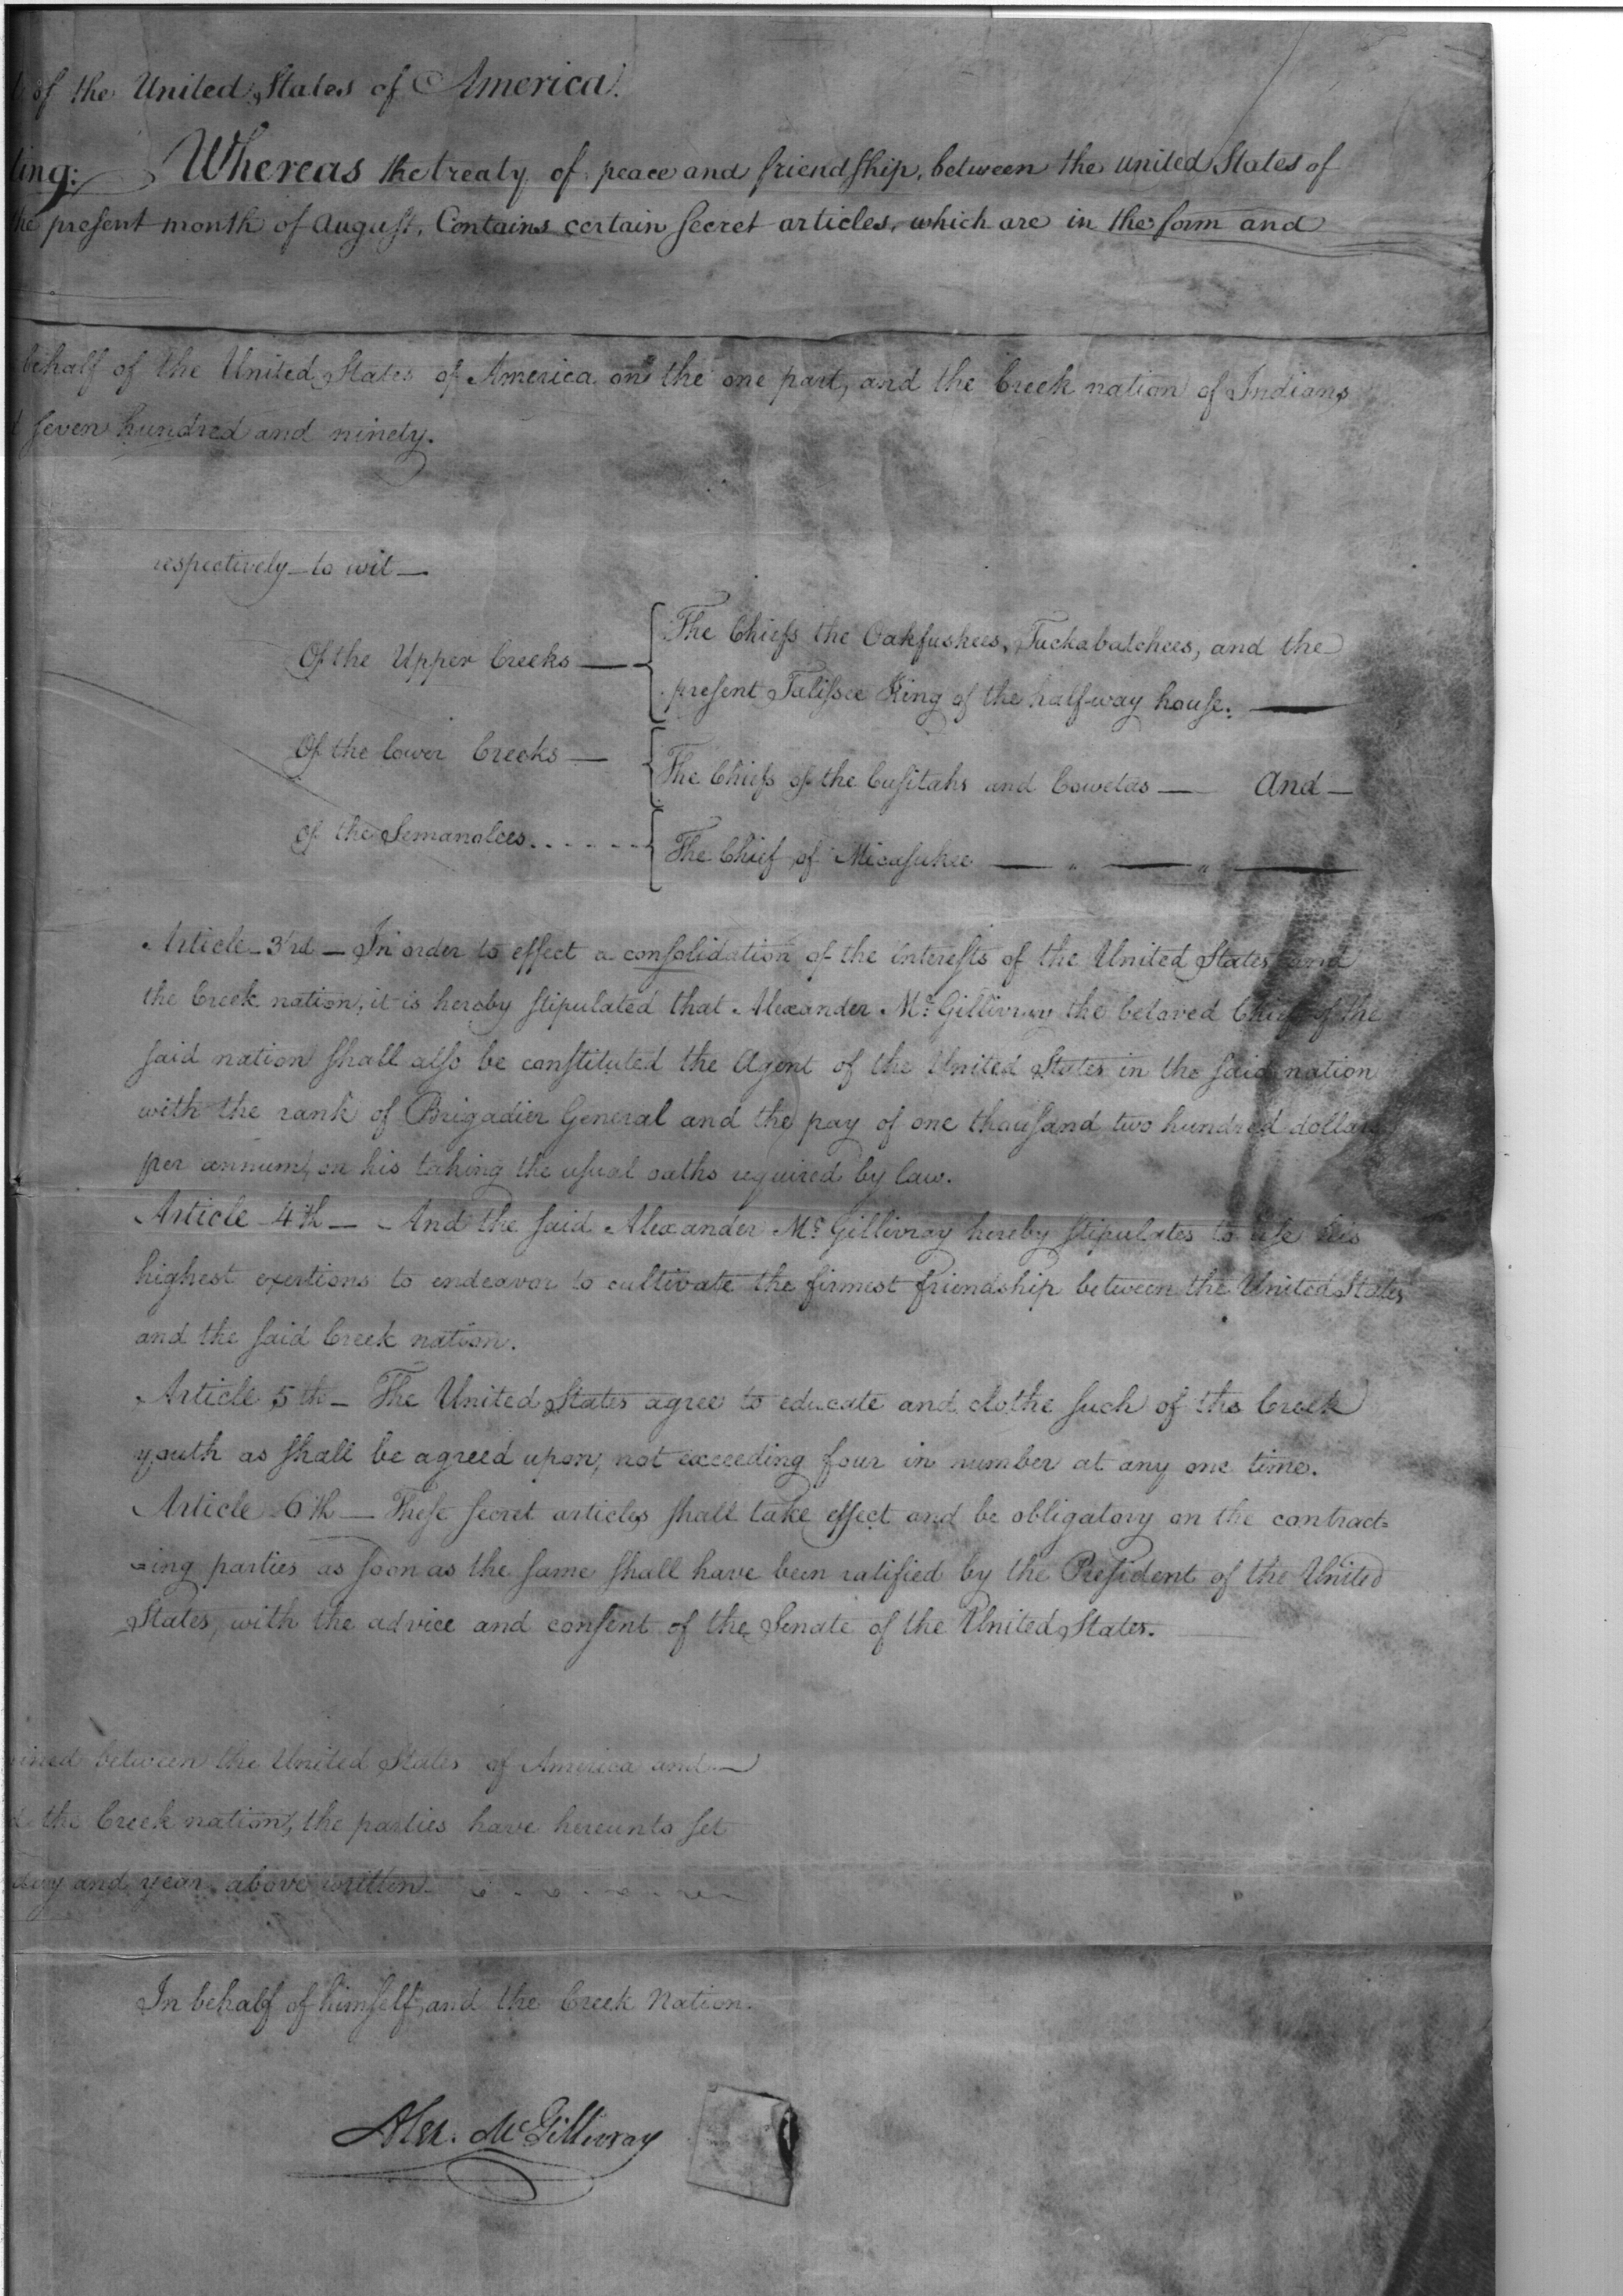 of the United States of America.
ting: Whereas the treaty of peace and friendship, between the united States of
the present month of August, Contains certain secret articles, which are in the form and
behalf of the United States of America on the one part, and the Creek nation of Indians
seven hundred and ninety.
respectively — to wit —
Of the Upper Creeks — { The Chiefs the Oakfuskees, Tuckabatchees, and the
present Talissee King of the half-way house. —
Of the lower Creeks — { The Chiefs of the Cusitahs and Cowetas — And —
Of the Semanolees . . . . . . { The Chief of Micasukee — " — " —
Article - 3rd — In order to effect a consolidation of the interests of the United States and
the Creek nation, it is hereby stipulated that Alexander Mc. Gillivray the beloved Chief of the
said nation shall also be constituted the Agent of the United States in the said nation
with the rank of Brigadier General and the pay of one thousand two hundred dollars
per annum, on his taking the usual oaths required by law.
Article - 4th — And the said Alexander Mc. Gillivray hereby stipulates to use his
highest exertions to endeavor to cultivate the firmest friendship between the United States
and the said Creek nation.
Article 5th — The United States agree to educate and clothe such of the Creek
youth as shall be agreed upon, not exceeding four in number at any one time.
Article 6th — These secret articles shall take effect and be obligatory on the contract=
=ing parties as soon as the same shall have been ratified by the President of the United
States, with the advice and consent of the Senate of the United States. —
between the United States of America and —
the Creek nation, the parties have hereunto set
day and year above written.
In behalf of himself, and the Creek Nation.
Alex. McGillivray